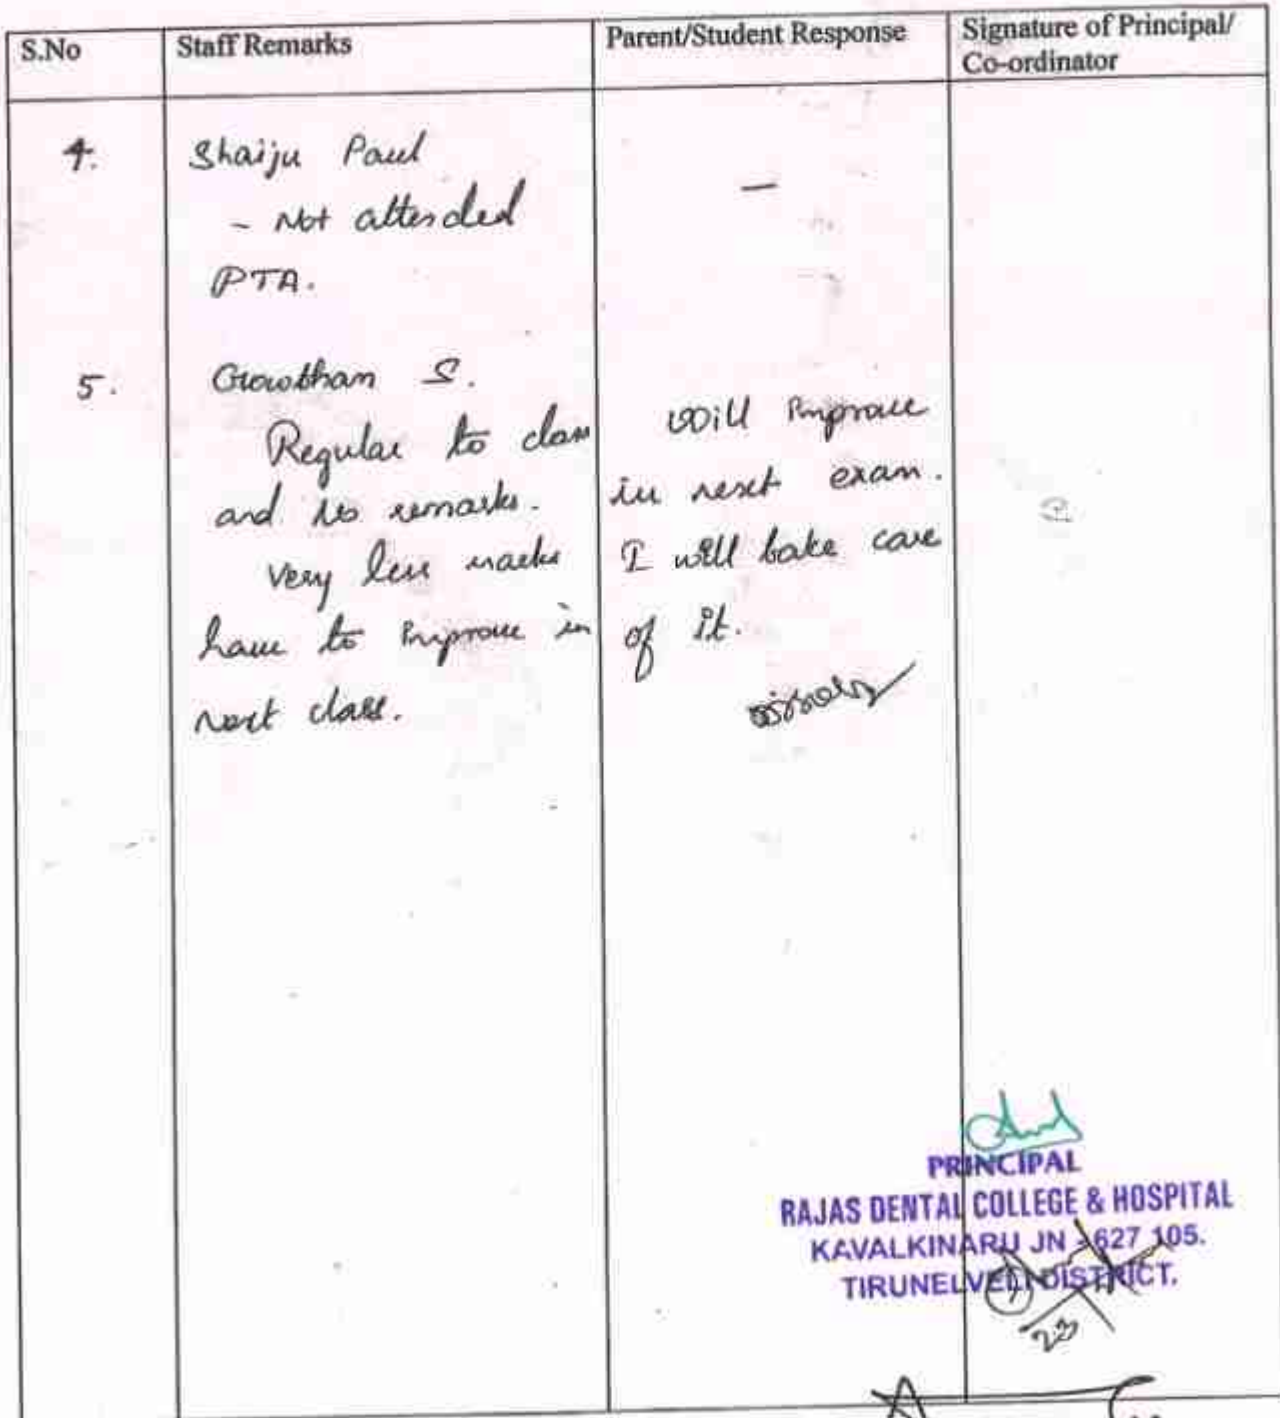 S.No
Staff Remarks
Parent/Student Response
Signature of Principal/
Co-ordinator
4.
Shaiju Paul
- Not attended
PTA.
-
5.
Gowtham S.
Regular to class
and no remarks.
Very less marks
have to improve in
next class.
Will improve
in next exam.
I will take care
of it.
PRINCIPAL
RAJAS DENTAL COLLEGE & HOSPITAL
KAVALKINARU JN - 627 105.
TIRUNELVELI DISTRICT.